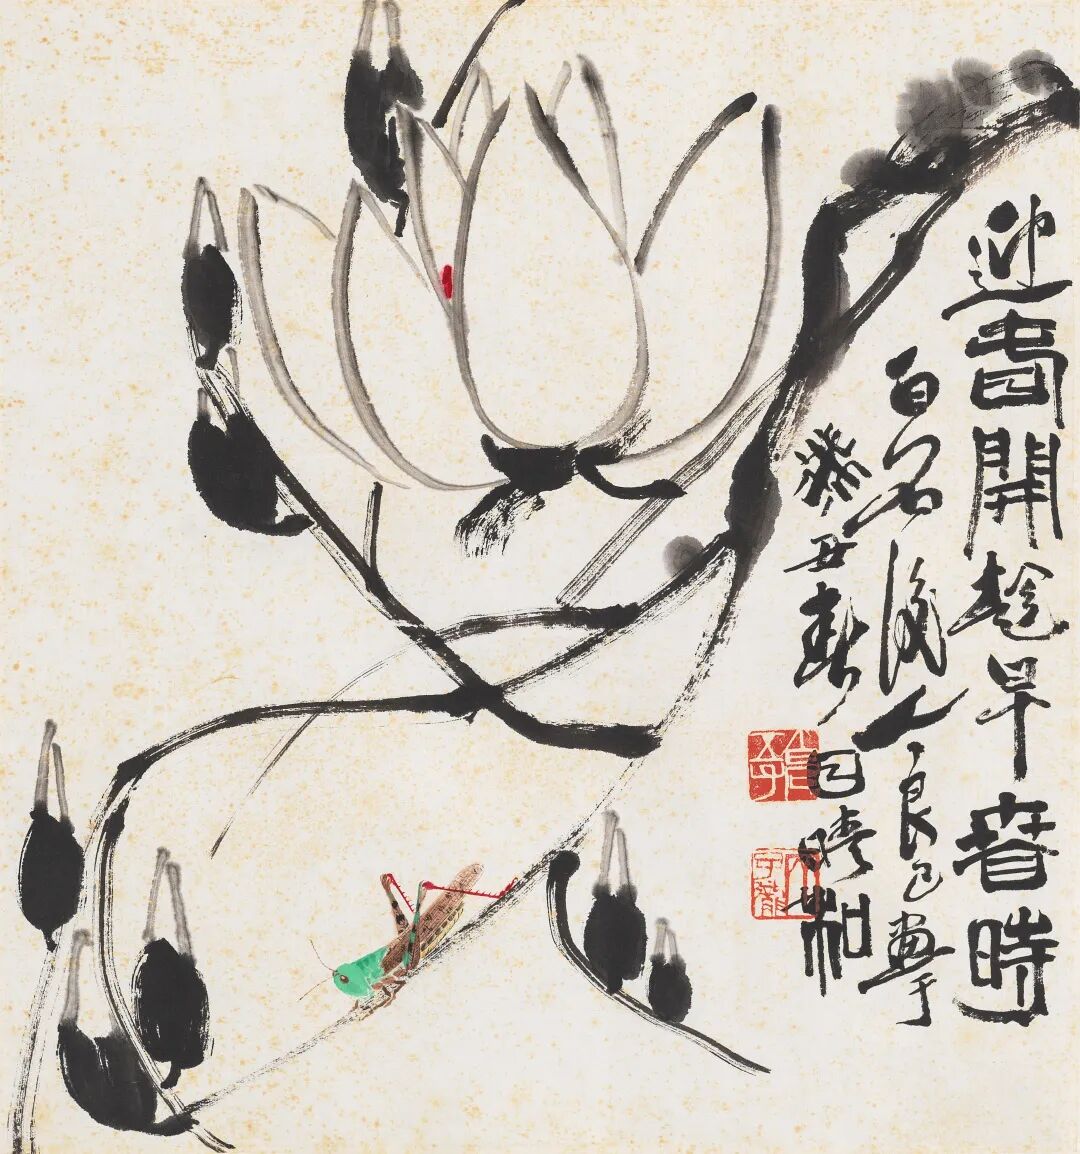 迎春開趁早春時
白石後人良已畫于
癸丑春日晴和